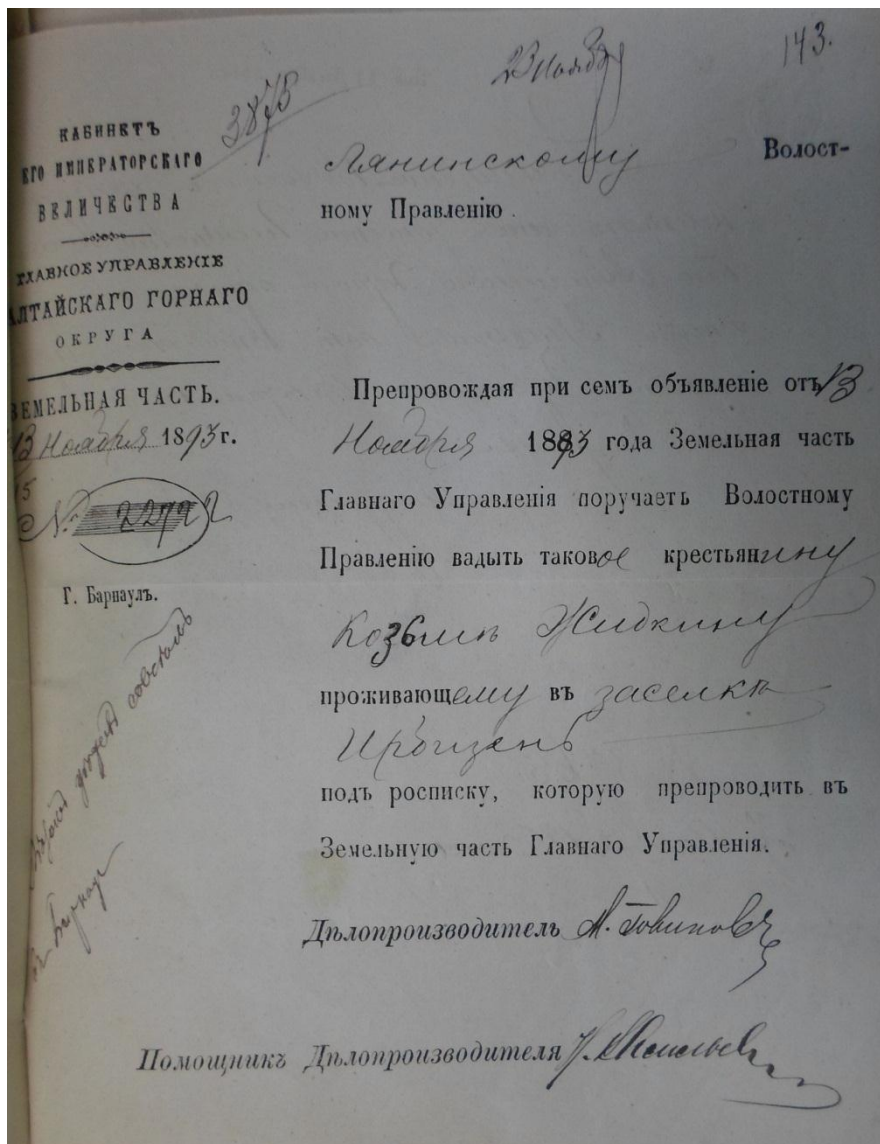 143.
23 Ноября
3878
КАБИНЕТЪ
ЕГО ИМПЕРАТОРСКАГО
ВЕЛИЧЕСТВА
ГЛАВНОЕ УПРАВЛЕНІЕ
АЛТАЙСКАГО ГОРНАГО
ОКРУГА
ЗЕМЕЛЬНАЯ ЧАСТЬ.
13 Ноября 1893 г.
№ 22722
Г. Барнаулъ.
Лянинскому Волост-
ному Правленію.
Препровождая при семъ объявленіе отъ 13
Ноября 1893 года Земельная часть
Главнаго Управленія поручаетъ Волостному
Правленію вадыть таковое крестьянину
Козьмѣ Жидкину
проживающему въ заселкѣ
под росписку, которую препроводить въ
Земельную часть Главнаго Управленія.
Дѣлопроизводитель
Помощникъ Дѣлопроизводителя
совсѣмъ